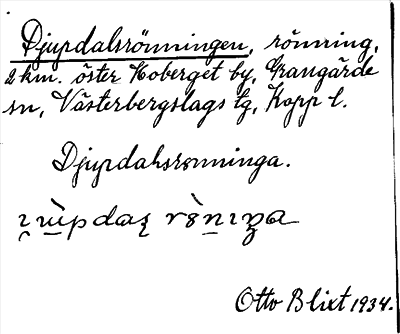 Djupdalsrönningen, rönning,
2 km. öster Hoberget by, Grangärde
sn, Västerbergslags tg, Kopp l.
Djupdalsrønninga.
Otto Blixt 1934.